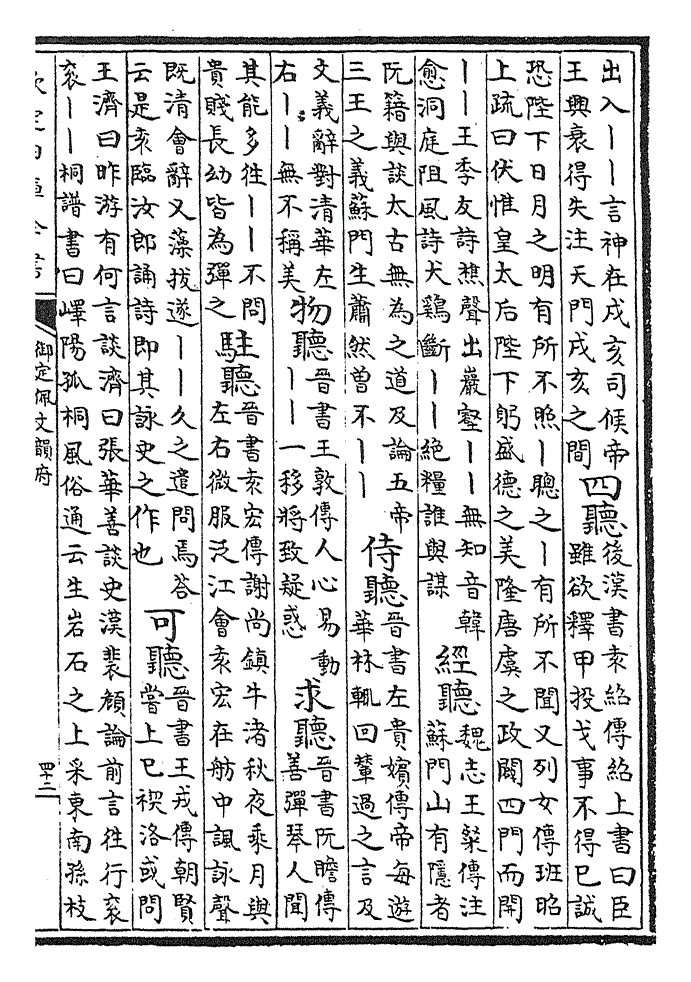 出入――言神在戌亥司候帝
王興衰得失注天門戌亥之間
四聽
後漢書袁紹傳紹上書曰臣
雖欲釋甲投戈事不得已誠
恐陛下日月之明有所不照―聰之―有所不聞又列女傳班昭
上疏曰伏惟皇太后陛下躬盛德之美隆唐虞之政闢四門而開
――王季友詩樵聲出巖壑――無知音韓
愈洞庭阻風詩犬鷄斷――絕糧誰與謀
經聽
魏志王粲傳注
蘇門山有隱者
阮籍與談太古無為之道及論五帝
三王之義蘇門生蕭然曾不――
侍聽
晉書左貴嬪傳帝每遊
華林輒回輦過之言及
文義辭對清華左
右――無不稱美
物聽
晉書王敦傳人心易動
――一移將致疑惑
求聽
晉書阮瞻傳
善彈琴人聞
其能多往――不問
貴賤長幼皆為彈之
駐聽
晉書袁宏傳謝尚鎮牛渚秋夜乘月與
左右微服泛江會袁宏在舫中諷詠聲
既清會辭又藻拔遂――久之遣問焉荅
云是袁臨汝郎誦詩即其詠史之作也
可聽
晉書王戎傳朝賢
嘗上巳禊洛或問
王濟曰昨游有何言談濟曰張華善談史漢裴頠論前言往行袞
袞――桐譜書曰嶧陽孤桐風俗通云生岩石之上采東南孫枝
欽定四庫全書
御定佩文韻府
四十二